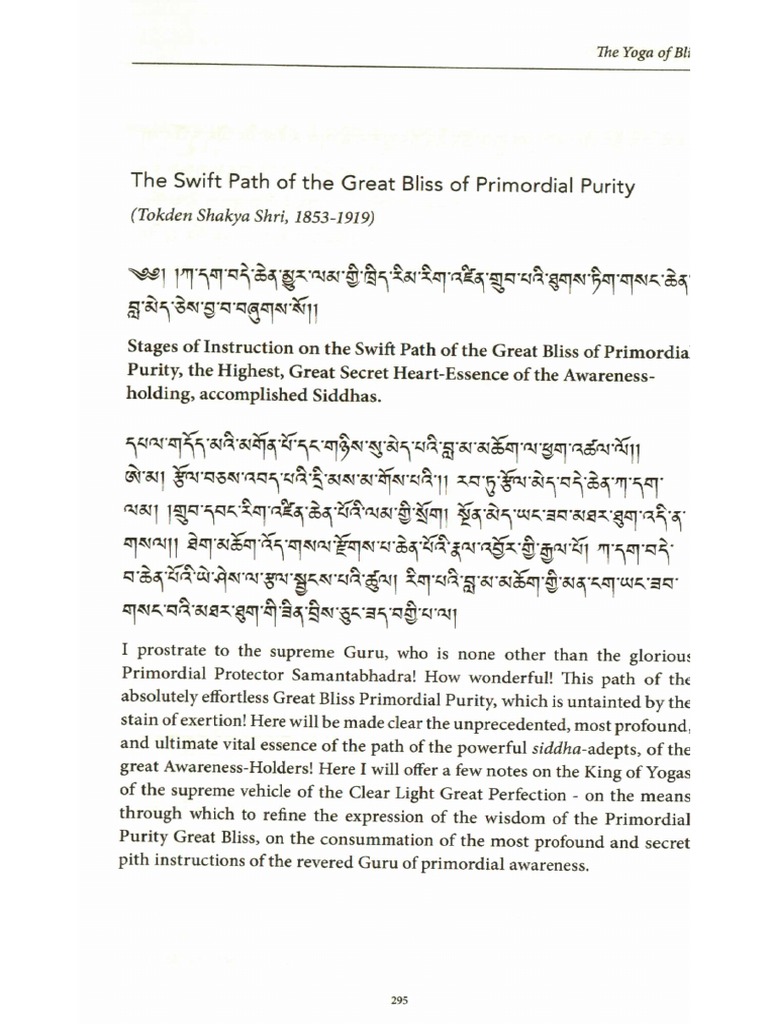 The Yoga of Bli
The Swift Path of the Great Bliss of Primordial Purity
(Tokden Shakya Shri, 1853-1919)
༄༅། །ཀ་དག་བདེ་ཆེན་མྱུར་ལམ་གྱི་ཁྲིད་རིམ་རིག་འཛིན་གྲུབ་པའི་ཐུགས་ཏིག་གསང་ཆེན་
བླ་མེད་ཅེས་བྱ་བ་བཞུགས་སོ།།
Stages of Instruction on the Swift Path of the Great Bliss of Primordia
Purity, the Highest, Great Secret Heart-Essence of the Awareness-
holding, accomplished Siddhas.
དཔལ་གདོད་མའི་མགོན་པོ་དང་གཉིས་སུ་མེད་པའི་བླ་མ་མཆོག་ལ་ཕྱག་འཚལ་ལོ།།
ཨེ་མ། རྩོལ་བཅས་འབད་པའི་དྲི་མས་མ་གོས་པའི།། རབ་ཏུ་རྩོལ་མེད་བདེ་ཆེན་ཀ་དག་
ལམ། །གྲུབ་དབང་རིག་འཛིན་ཆེན་པོའི་ལམ་གྱི་སྲོག། སྔོན་མེད་ཡང་ཟབ་མཐར་ཐུག་འདི་ན་
གསལ།། ཐེག་མཆོག་འོད་གསལ་རྫོགས་པ་ཆེན་པོའི་རྣལ་འབྱོར་གྱི་རྒྱལ་པོ། ཀ་དག་བདེ་
བ་ཆེན་པོའི་ཡེ་ཤེས་ལ་རྩལ་སྦྱངས་པའི་ཚུལ། རིག་པའི་བླ་མ་མཆོག་གྱི་མན་ངག་ཡང་ཟབ་
གསང་བའི་མཐར་ཐུག་གི་ཟིན་བྲིས་ཅུང་ཟད་བགྱི་པ་ལ།
I prostrate to the supreme Guru, who is none other than the glorious
Primordial Protector Samantabhadra! How wonderful! This path of the
absolutely effortless Great Bliss Primordial Purity, which is untainted by the
stain of exertion! Here will be made clear the unprecedented, most profound,
and ultimate vital essence of the path of the powerful siddha-adepts, of the
great Awareness-Holders! Here I will offer a few notes on the King of Yogas
of the supreme vehicle of the Clear Light Great Perfection - on the means
through which to refine the expression of the wisdom of the Primordial
Purity Great Bliss, on the consummation of the most profound and secret
pith instructions of the revered Guru of primordial awareness.
295